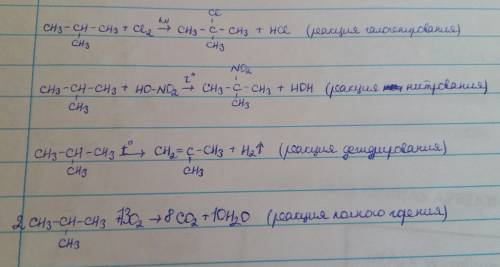 Cl
CH₃-CH-CH₃ + Cl₂ →hν CH₃-C-CH₃ + HCl (реакция галогенирования)
CH₃ CH₃
NO₂
CH₃-CH-CH₃ + HO-NO₂ →t° CH₃-C-CH₃ + HOH (реакция нитрования)
CH₃ CH₃
CH₃-CH-CH₃ t°→ CH₂=C-CH₃ + H₂↑ (реакция дегидрирования)
CH₃ CH₃
2 CH₃-CH-CH₃ + 13O₂ → 8CO₂ + 10H₂O (реакция полного горения)
CH₃